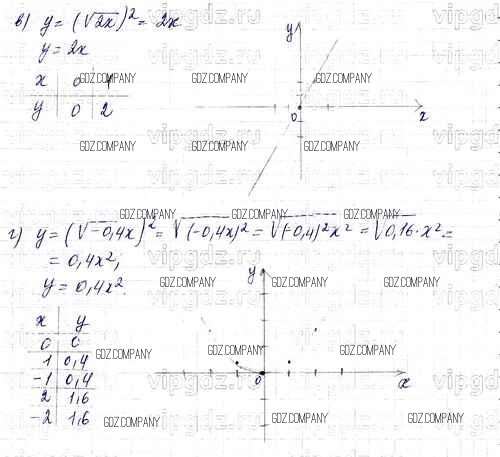 в) y = (√2x)² = 2x
y = 2x
x | 0 | 1
y | 0 | 2
y
0
x
г) y = (√-0,4x)² = √(-0,4x)² = √(-0,4)²x² = √0,16·x² =
= 0,4x²,
y = 0,4x².
x | y
0 | 0
1 | 0,4
-1 | 0,4
2 | 1,6
-2 | 1,6
y
0
x
GDZ.COMPANY
vipgdz.ru